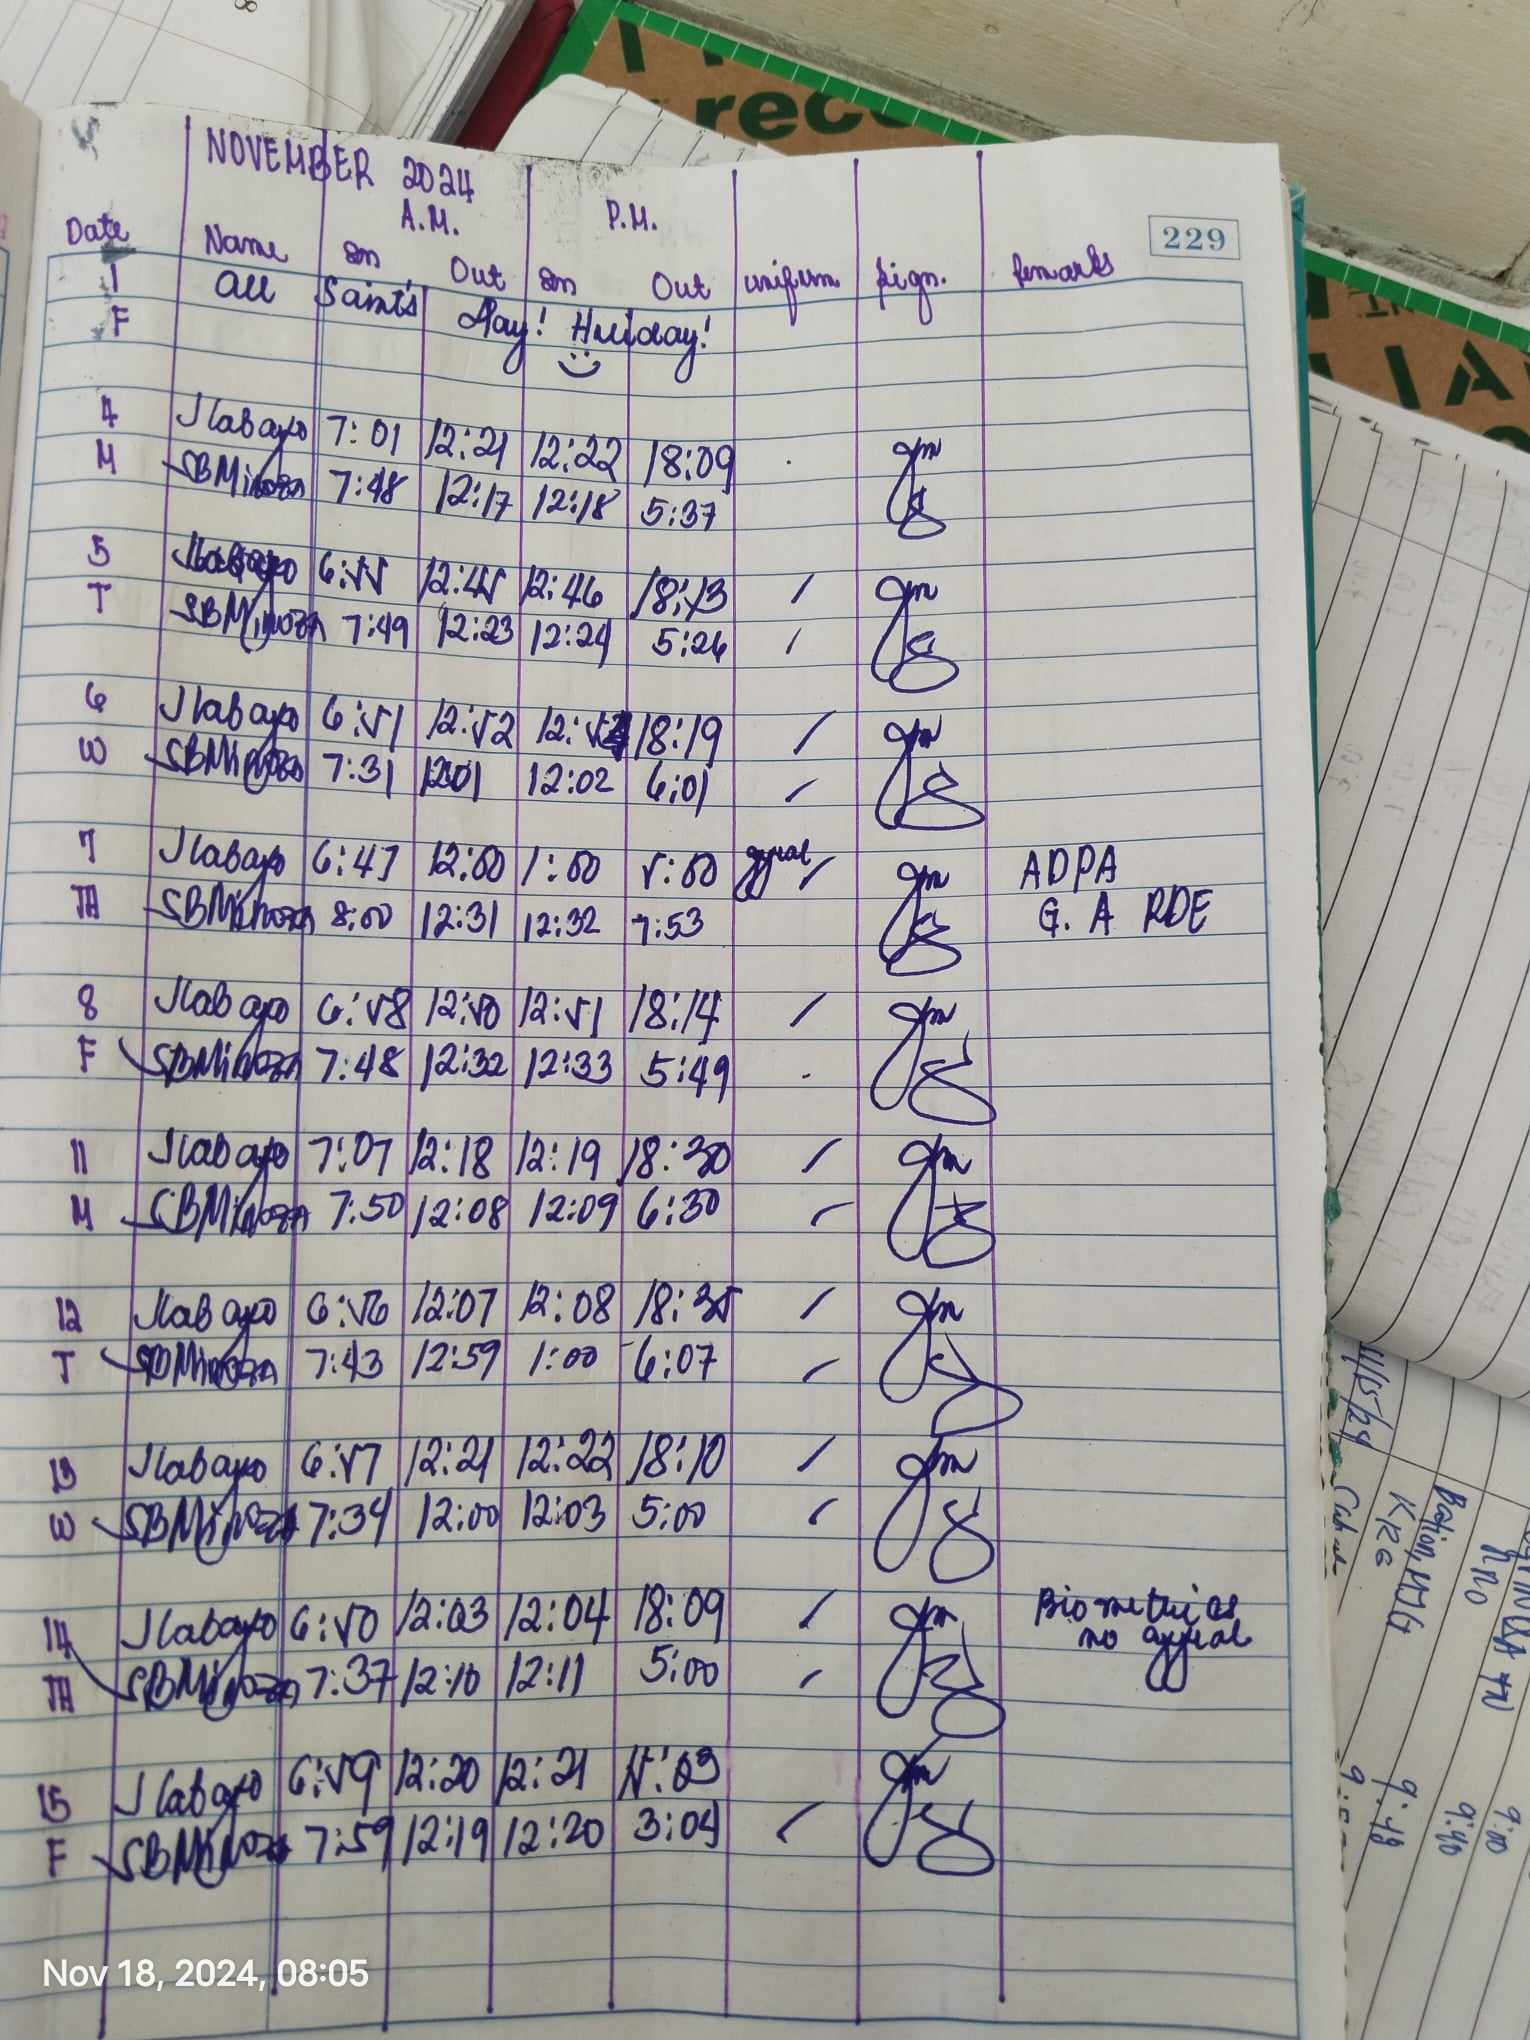 NOVEMBER 2024
A.M. P.M.
229
Date Name In Out In Out uniform sign. Remarks
1 All Saint's Day! Holiday!
F
4 JLabayo 7:01 12:21 12:22 18:09
M SBMinoza 7:48 12:17 12:18 5:37
5 JLabayo 6:55 12:45 12:46 18:13
T SBMinoza 7:49 12:23 12:24 5:26
6 JLabayo 6:51 12:52 18:19
W SBMinoza 7:31 12:01 12:02 6:01
7 JLabayo 6:47 12:00 1:00 5:00 ADPA
TH SBMinoza 8:00 12:31 12:32 7:53 G. A RDE
8 JLabayo 6:58 12:50 12:51 18:14
F SBMinoza 7:48 12:32 12:33 5:49
11 JLabayo 7:07 12:18 12:19 18:30
M SBMinoza 7:50 12:08 12:09 6:30
12 JLabayo 6:56 12:07 12:08 18:35
T SBMinoza 7:43 12:59 1:00 6:07
13 JLabayo 6:57 12:21 12:22 18:10
W SBMinoza 7:34 12:00 12:03 5:00
14 JLabayo 6:50 12:03 12:04 18:09 Biometrics
no
TH SBMinoza 7:37 12:10 12:11 5:00
15 JLabayo 6:59 12:20 12:21 15:03
F SBMinoza 7:59 12:19 12:20 3:04
Nov 18, 2024, 08:05
rec
11/15/24
KRG
9:48
9:40
9:00